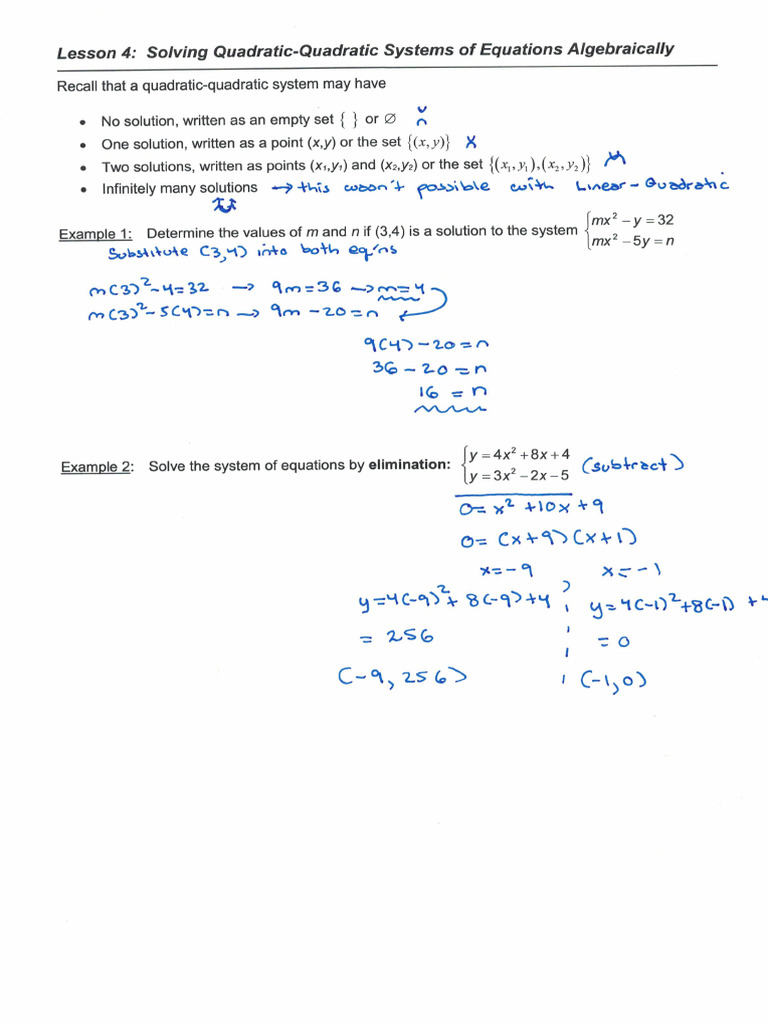 Lesson 4: Solving Quadratic-Quadratic Systems of Equations Algebraically
Recall that a quadratic-quadratic system may have
• No solution, written as an empty set { } or ∅
• One solution, written as a point (x,y) or the set {(x, y)}
• Two solutions, written as points (x₁,y₁) and (x₂,y₂) or the set {(x₁, y₁),(x₂, y₂)}
• Infinitely many solutions → this wasn't possible with Linear-Quadratic
Example 1: Determine the values of m and n if (3,4) is a solution to the system { mx² − y = 32
mx² − 5y = n
Substitute (3,4) into both eq'ns
m(3)² − 4 = 32 → 9m = 36 → m = 4
m(3)² − 5(4) = n → 9m − 20 = n
9(4) − 20 = n
36 − 20 = n
16 = n
Example 2: Solve the system of equations by elimination: { y = 4x² + 8x + 4
y = 3x² − 2x − 5 (subtract)
0 = x² + 10x + 9
0 = (x + 9)(x + 1)
x = −9 x = −1
y = 4(−9)² + 8(−9) + 4 y = 4(−1)² + 8(−1) + 4
= 256 = 0
(−9, 256) (−1, 0)